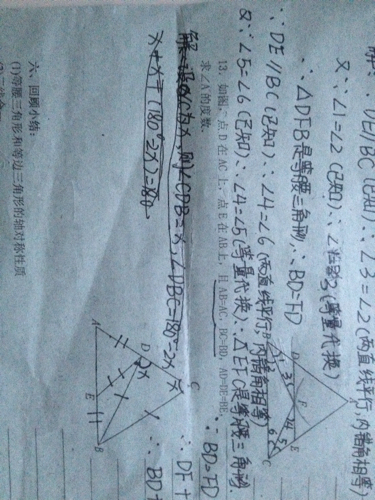 ∵DE//BC(已知)∴∠3=∠2(两直线平行,内错角相等)
又∵∠1=∠2(已知)∴
(等量代换)
∴△DFB是等腰三角形,∴BD=FD
∵DE//BC(已知)∴∠4=∠6(两直线平行,内错角相等)
又∵∠5=∠6(已知)∴∠4=∠5(等量代换)∴△EFC是等腰三角形
13. 如图,点D在AC上,点E在AB上,且AB=AC,BC=BD,AD=DE=BE,
求∠A的度数.
∴BD=FD
∴DF+
∴BD+
解:设∠C为x,则∠CDB=x,∠DBC=180°-2x
x+x+(180°-2x)=180
六、回顾小结:
(1)等腰三角形和等边三角形的轴对称性质
A
D
C
E
B
2x
x
D
F
E
C